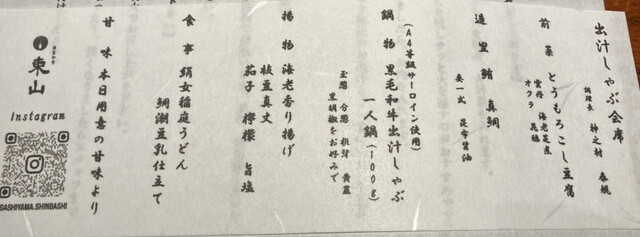 出汁しゃぶ会席
調理長 神之村 泰規
前菜 とうもろこし豆腐
雲丹 海老芝煮
オクラ 花穂
造里 鮪 真鯛
妻一式 昆布醤油
鍋物 黒毛和牛出汁しゃぶ
(A4等級サーロイン使用) 一人鍋(100g)
玉葱 分葱 根芽 黄韮
黒胡椒をお好みで
揚物 海老香り揚げ
枝豆真丈
茄子 檸檬 旨塩
食事 絹女稲庭うどん
鯛潮豆乳仕立て
甘味 本日用意の甘味より
東山
Instagram
GASHIYAMA.SHINBASHI